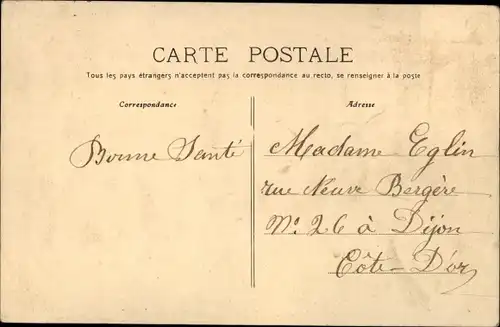 CARTE POSTALE
Tous les pays étrangers n'acceptent pas la correspondance au recto, se renseigner à la poste
Correspondance
Bonne Santé
Adresse
Madame Eglin
rue Neuve Bergère
Nº 26 à Dijon
Côte-D'or